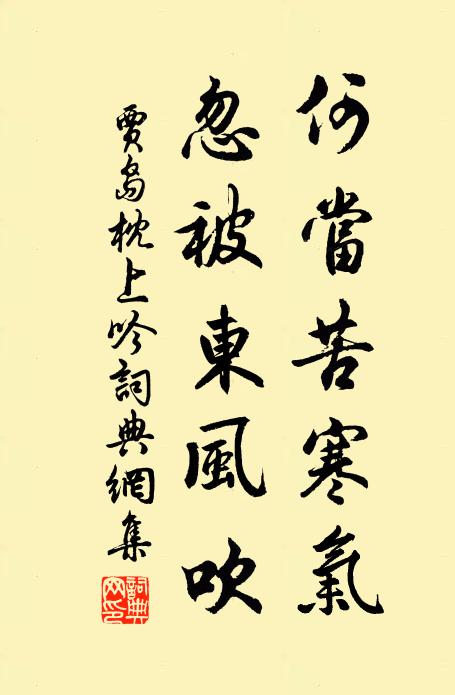 何當苦寒氣
忽被東風吹
賈島枕上吟詞典網集
詞典網印